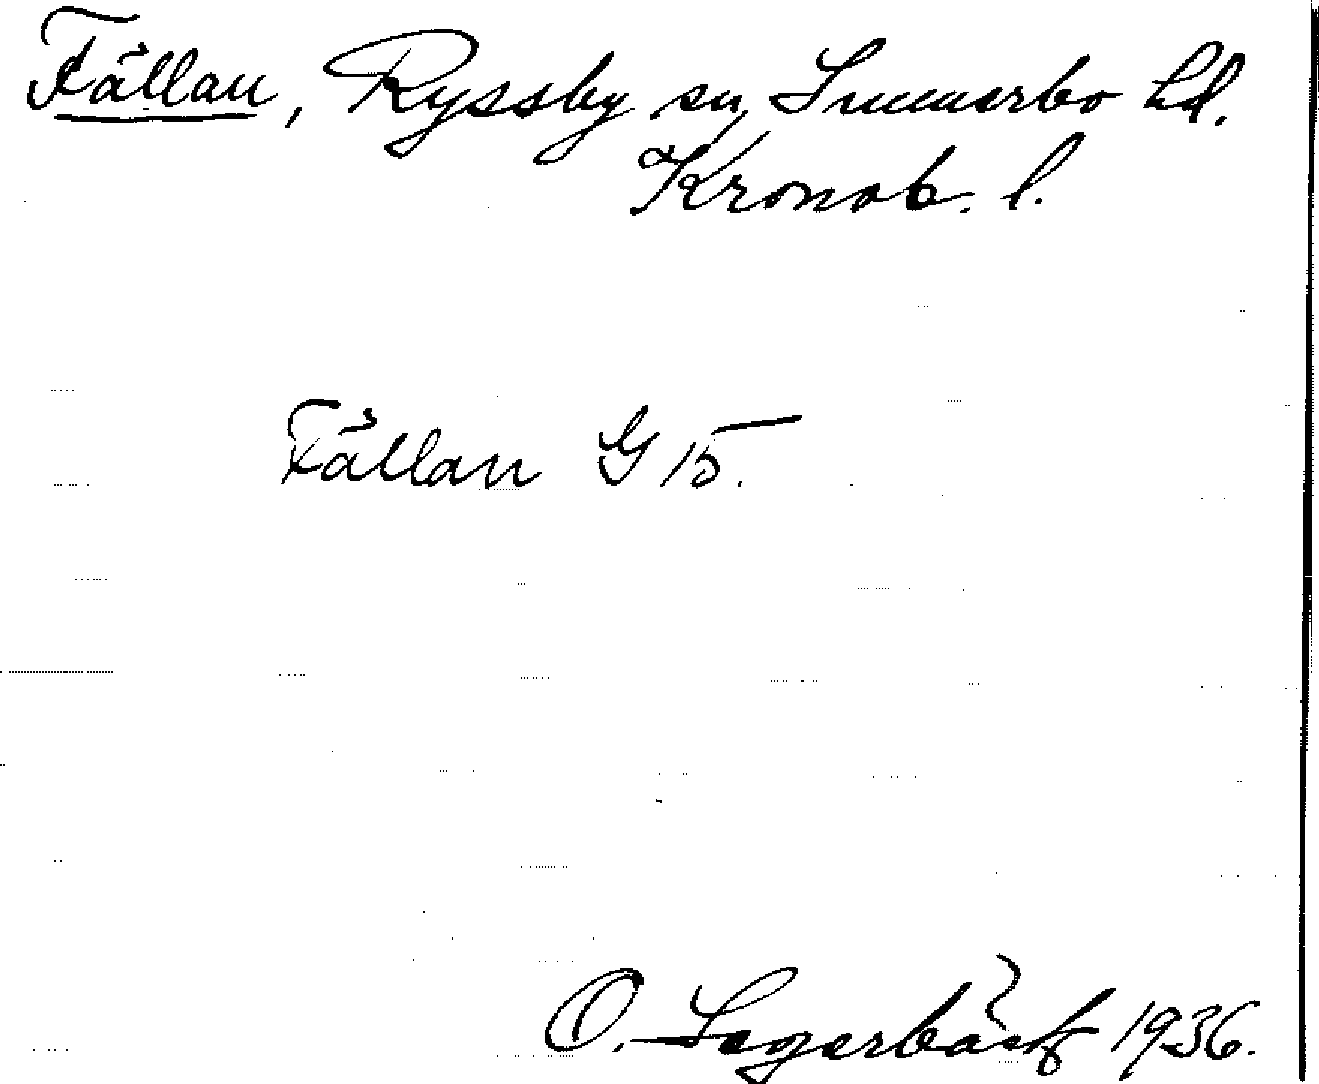 Fällan, Ryssby sn, Sunnerbo hd.
Kronob. l.
Fällan G 15.
O. Lagerbäck 1936.